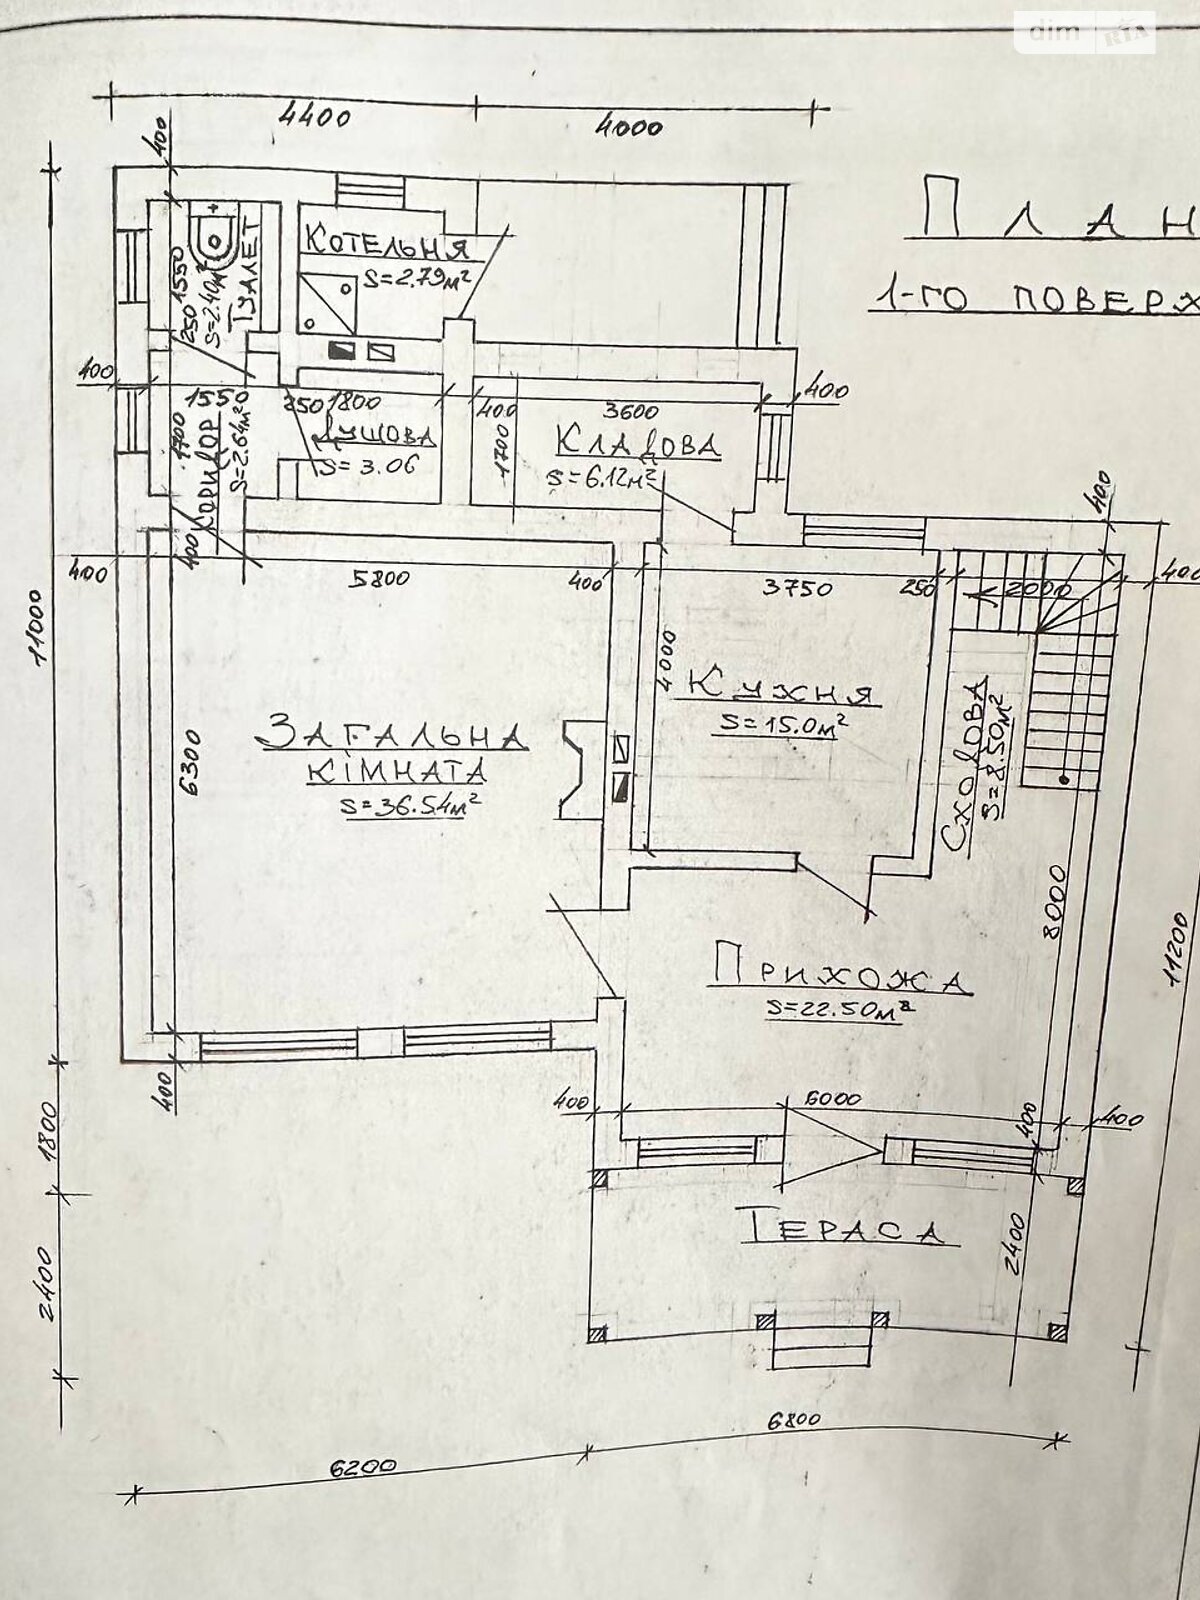 dim RIA
4400
4000
400
ПЛАН
1-ГО ПОВЕРХ
КОТЕЛЬНЯ
S=2.79м²
ТУАЛЕТ
S=2.40м²
1550
250
400
1550
250
1800
400
3600
400
1700
КОРИДОР
S=2.64м²
ДУШОВА
S=3.06
1700
КЛАДОВА
S=6.12м²
400
400
400
5800
400
3750
250
2000
400
11000
4000
6300
ЗАГАЛЬНА
КІМНАТА
S=36.54м²
КУХНЯ
S=15.0м²
СХОДОВА
S=8.50м²
8000
11200
ПРИХОЖА
S=22.50м²
400
400
6000
400
400
1800
2400
ТЕРАСА
2400
6200
6800